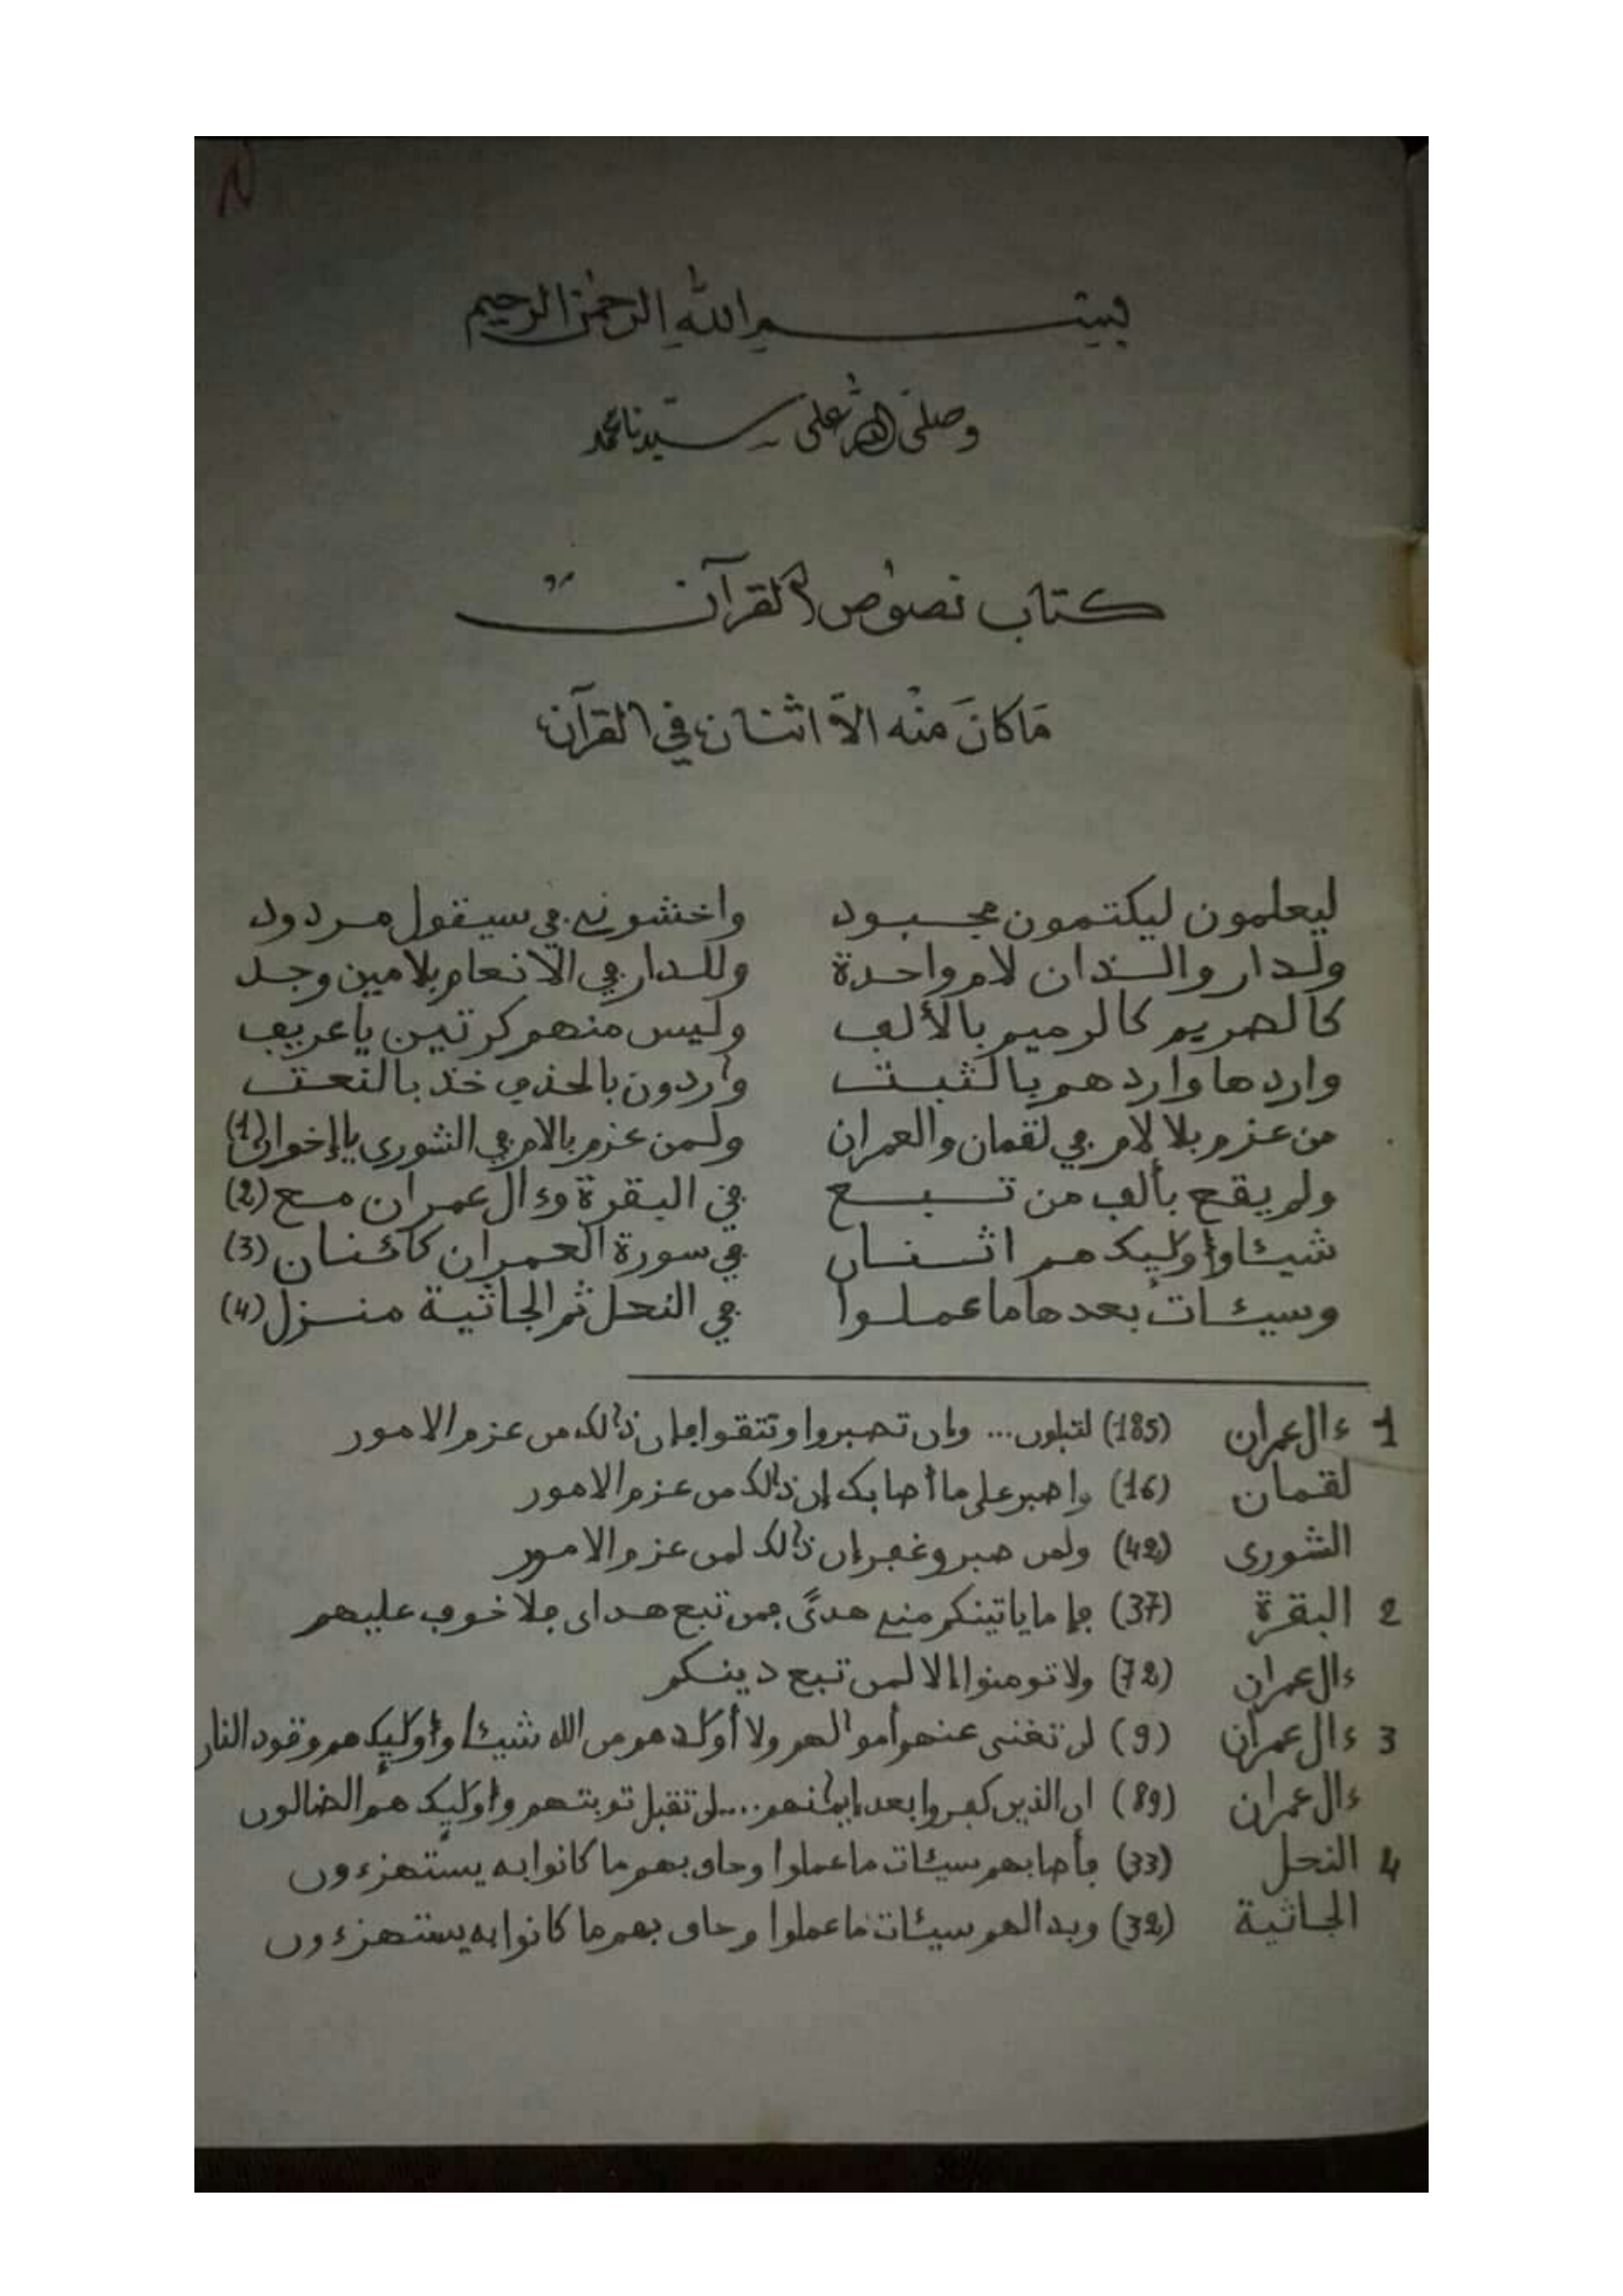 بسم الله الرحمٰن الرحيم
وصلى الله على سيدنا محمد
كتاب نصوص القرآن
مَا كانَ منْه الاَّ اثنان في القرآن
ليعلمون ليكتمون مجبود واخشوني في سيقول مردود
ولدار والذان لام واحدة وللدار في الانعام بلامين وجد
كالصريم كالرميم بالألف وليس منهم كرتين يا عريف
واردها واردهم بالثبت واردون بالحذف خذ بالنعت
من عزم بلا لام في لقمان والعمران ولمن عزم بالام في الشورى يا إخواني (1)
ولم يقع بألف من تبع في البقرة وءال عمران مع (2)
شيئا وأوليك هم اثنان في سورة العمران كائنان (3)
وسيئات بعدها ما عملوا في النحل ثم الجاثية منزل (4)
1 ءال عمران (185) لتبلون... وإن تصبروا وتتقوا فإن ذالك من عزم الامور
لقمان (16) واصبر على ما أصابك إن ذالك من عزم الامور
الشورى (42) ولمن صبر وغفر إن ذالك لمن عزم الامور
2 البقرة (37) فإما ياتينكم مني هدىً فمن تبع هداي فلا خوف عليهم
ءال عمران (72) ولا تومنوا إلا لمن تبع دينكم
3 ءال عمران (9) لن تغنى عنهم أموالهم ولا أولدهم من الله شيئا وأوليك هم وقود النار
ءال عمران (89) ان الذين كفروا بعد إيمنهم .... لن تقبل توبتهم وأوليك هم الضالون
4 النحل (33) فأصابهم سيئات ما عملوا وحاق بهم ما كانوا به يستهزءون
الجاثية (32) وبدا لهم سيئات ما عملوا وحاق بهم ما كانوا به يستهزءون